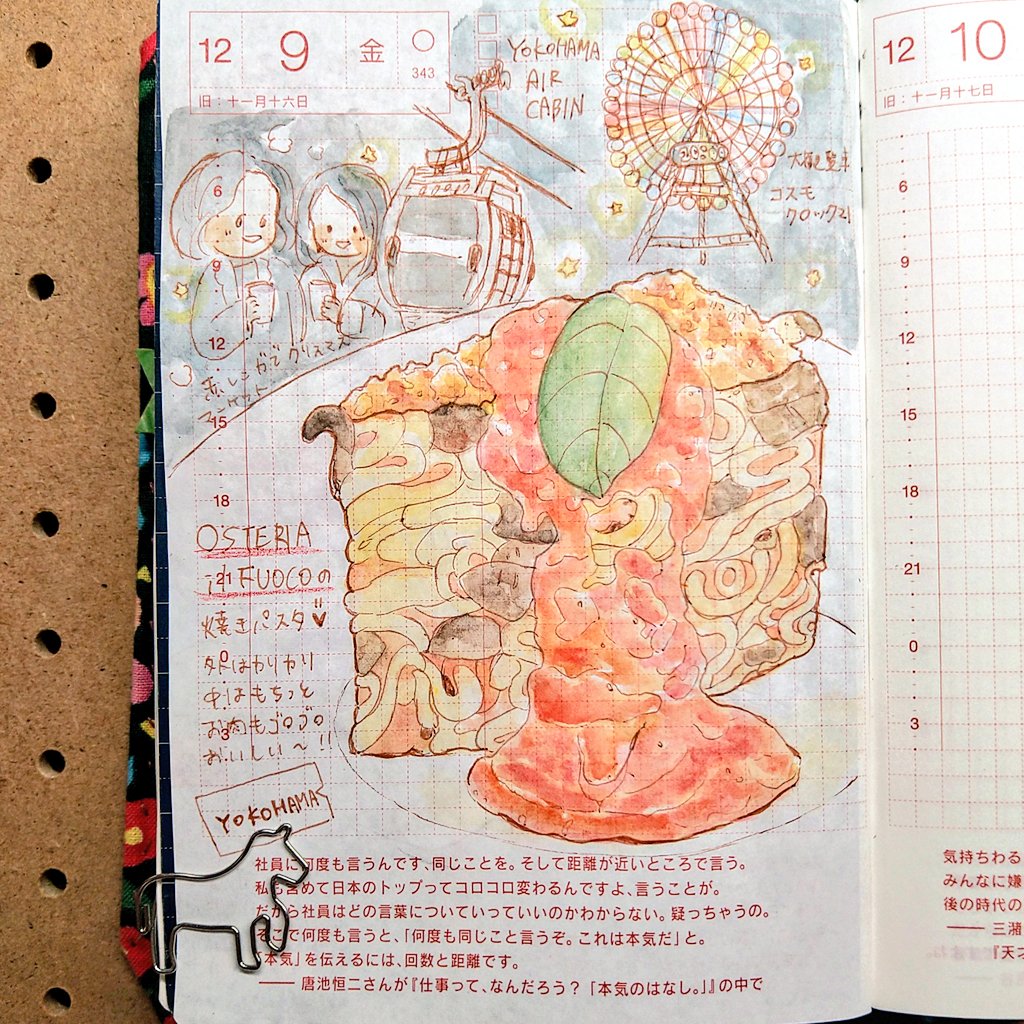 12 9 金
343
旧：十一月十六日
YOKOHAMA
AIR
CABIN
大観覧車
コスモ
クロック21
赤レンガでクリスマス
マーケット
6
9
12
15
18
21
0
3
OSTERIA
FUOCOの
焼きパスタ♥
外はカリカリ
中はもちっと
お肉もゴロゴロ
おいしい〜!!
YOKOHAMA
社員に何度も言うんです、同じことを。そして距離が近いところで言う。
私も含めて日本のトップってコロコロ変わるんですよ、言うことが。
だから社員はどの言葉についていっていいのかわからない。疑っちゃうの。
そこで何度も言うと、「何度も同じこと言うぞ。これは本気だ」と。
「本気」を伝えるには、回数と距離です。
―― 唐池恒二さんが『仕事って、なんだろう？ 「本気のはなし。」』の中で
12 10
旧：十一月十七日
6
9
12
15
18
21
0
3
気持ちわる
みんなに嫌
後の時代の
―― 三潴
『天才